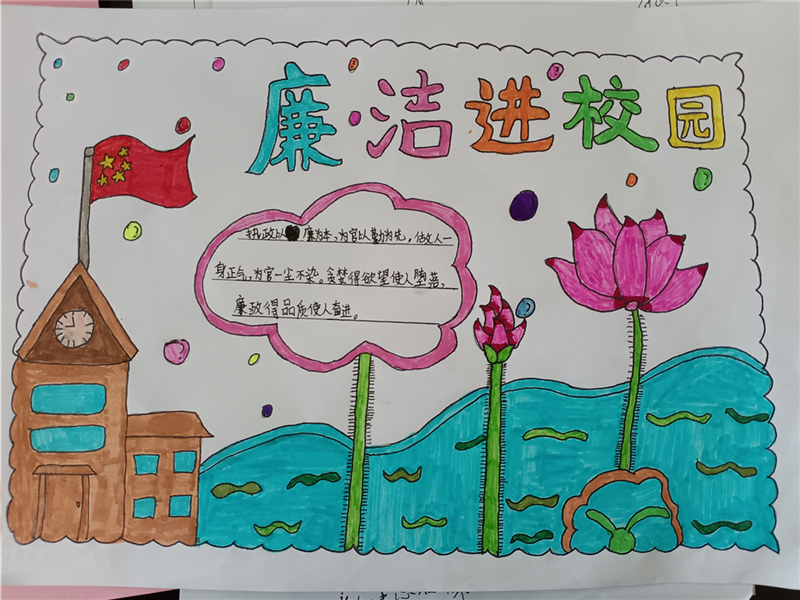 廉洁进校园
执政以廉为本,为官以勤为先。做人一
身正气,为官一尘不染。贪婪得欲望使人堕落,
廉政得品质使人奋进。